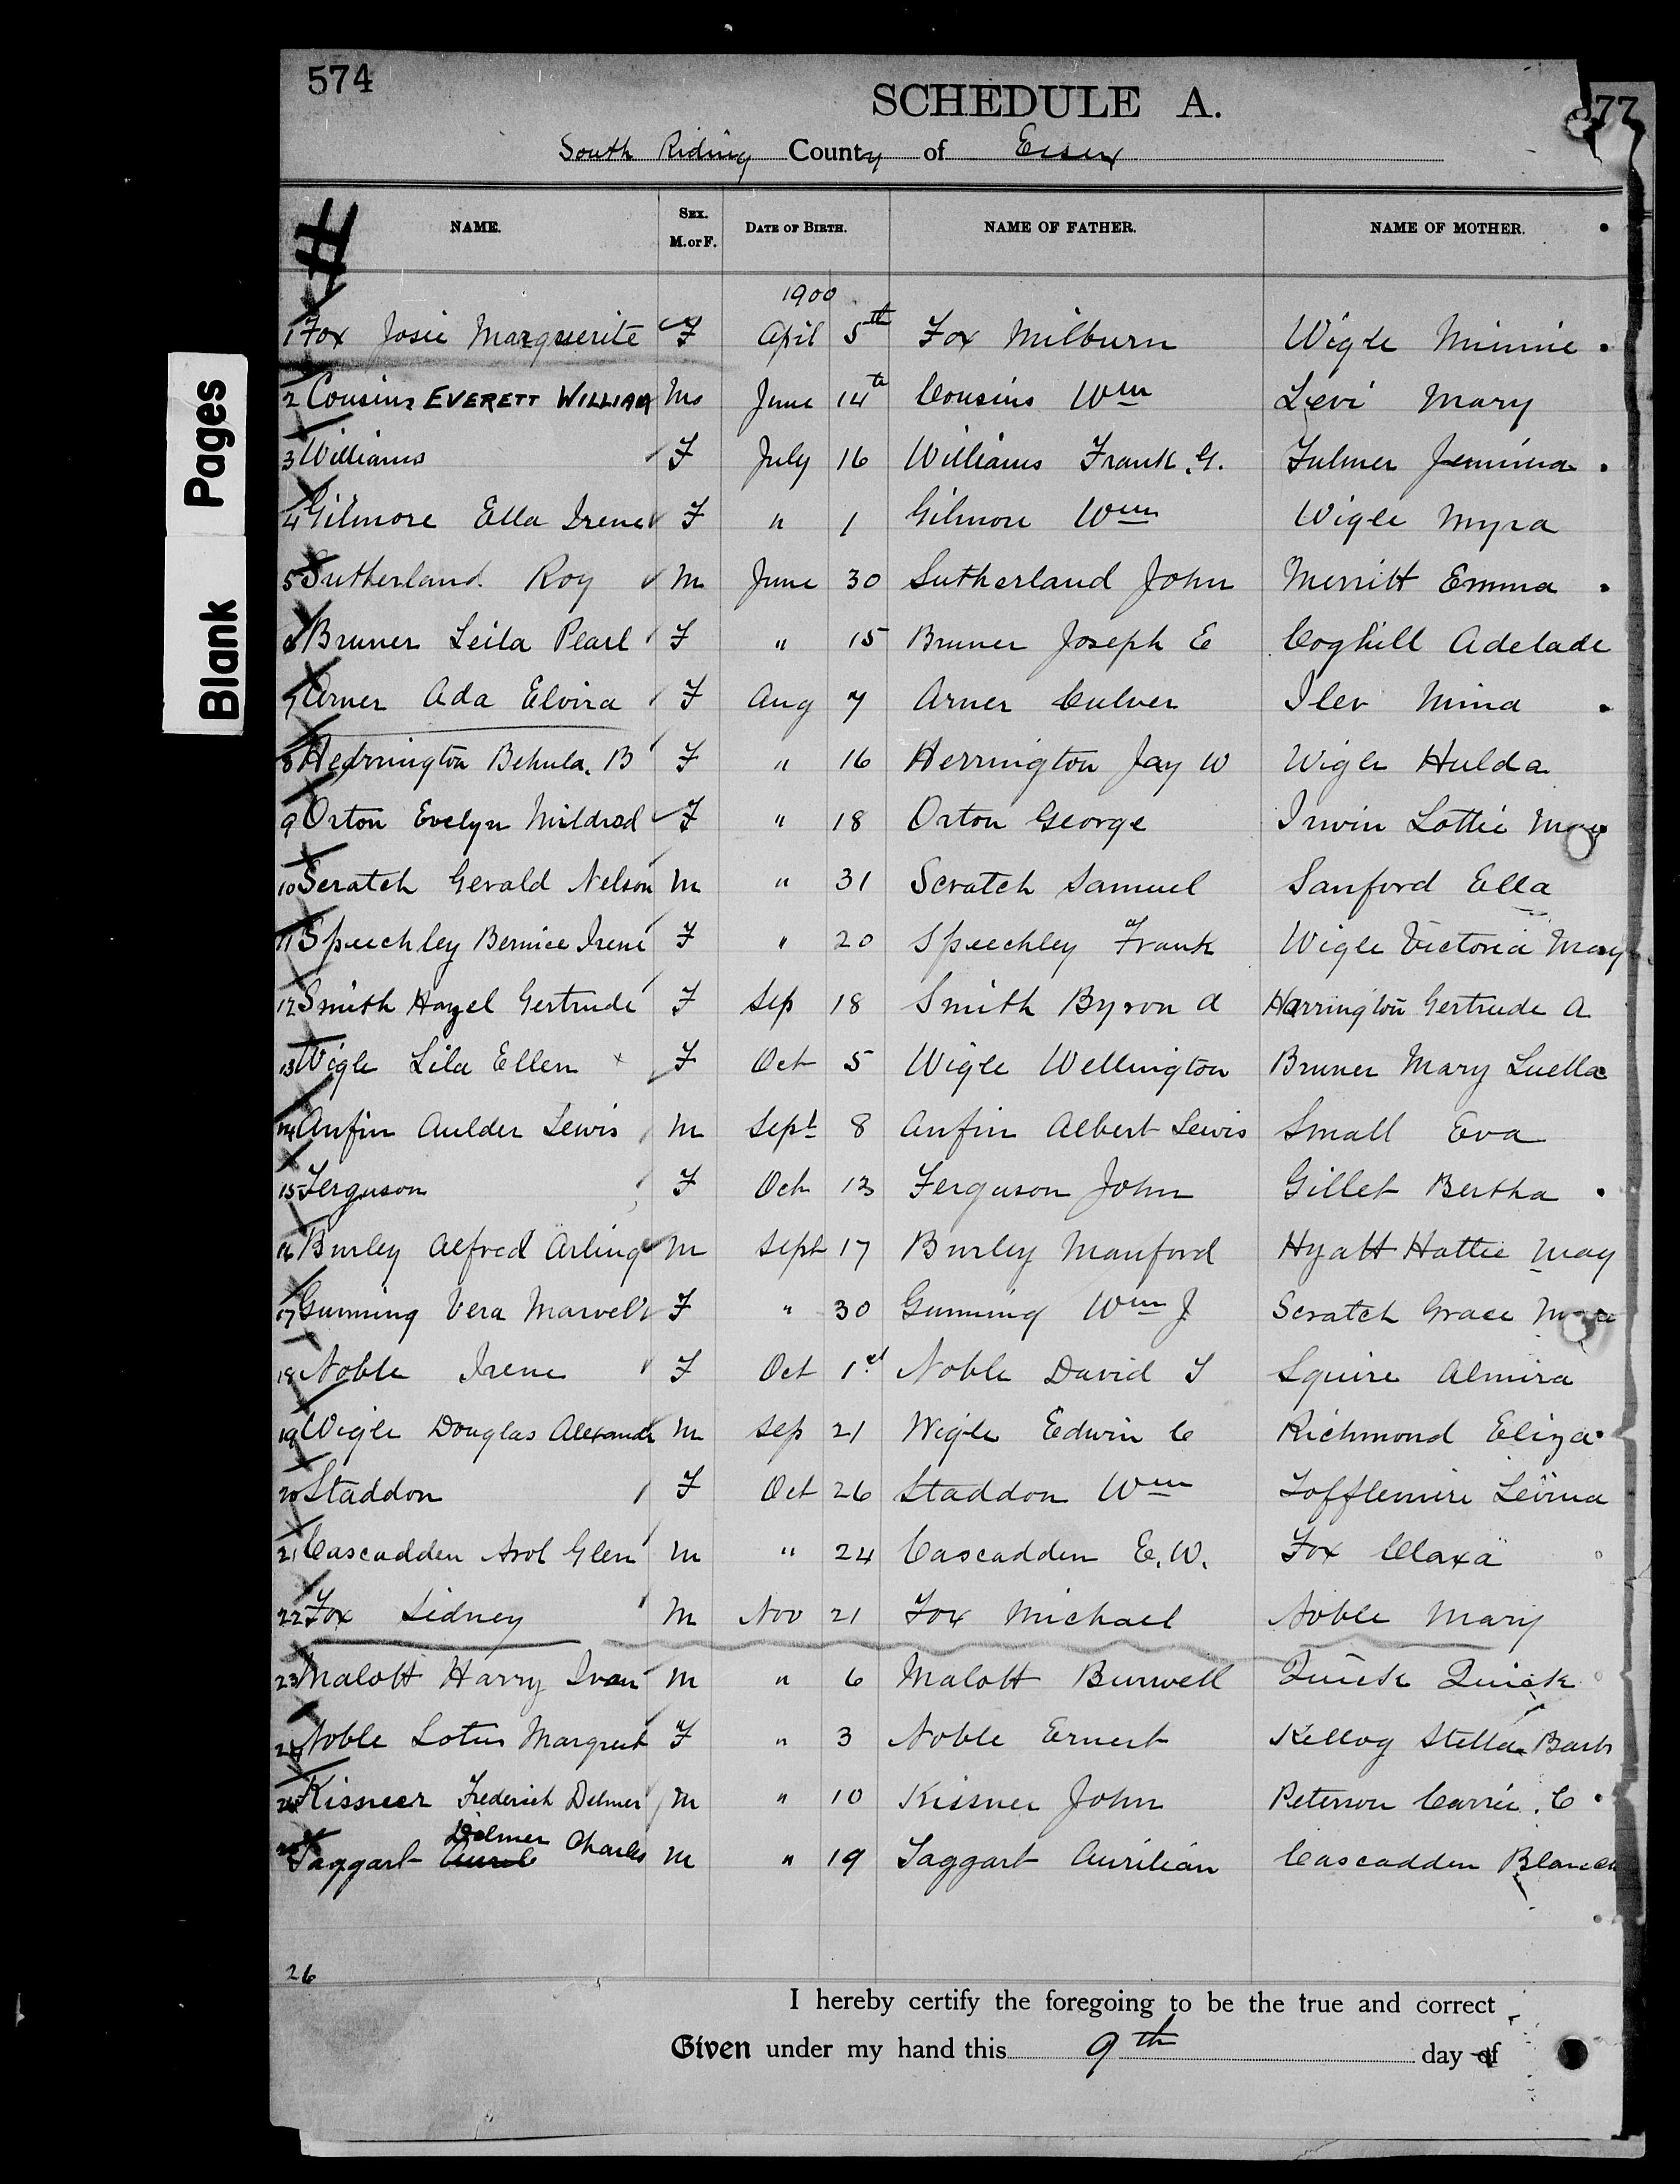 574
SCHEDULE A.
577
South Riding County of Essex
NAME. SEX. M. or F. DATE OF BIRTH. NAME OF FATHER. NAME OF MOTHER.
1900
1 Fox Josie Marguerite F April 5th Fox Milburn Wigle Minnie
2 Cousins EVERETT WILLIAM M June 14th Cousins Wm Levi Mary
3 Williams F July 16 Williams Frank G. Fulmer Jemima
4 Gilmore Ella Irene F " 1 Gilmore Wm Wigle Myra
5 Sutherland Roy M June 30 Sutherland John Merritt Emma
6 Bruner Leila Pearl F " 15 Bruner Joseph E Coghill Adelade
7 Arner Ada Elvira F Aug 7 Arner Culver Iler Mina
8 Herrington Behula. B F " 16 Herrington Jay W Wigle Hulda
9 Orton Evelyn Mildred F " 18 Orton George Irwin Lottie
10 Scratch Gerald Nelson M " 31 Scratch Samuel Sanford Ella
11 Speechley Bernice Irene F " 20 Speechley Frank Wigle Victoria May
12 Smith Hazel Gertrude F Sep 18 Smith Byron A Harrington Gertrude A
13 Wigle Lila Ellen F Oct 5 Wigle Wellington Bruner Mary Luella
14 Anfin Aulder Lewis M Sept 8 Anfin Albert Lewis Small Eva
15 Ferguson F Oct 13 Ferguson John Gillet Bertha
16 Burley Alfred Arling M Sept 17 Burley Manford Hyatt Hattie May
17 Gunning Vera F " 30 Gunning Wm J Scratch Grace
18 Noble Irene F Oct 1st Noble David T Squire Almira
19 Wigle Douglas Alexander M Sep 21 Wigle Edwin C Richmond Eliza
20 Staddon F Oct 26 Staddon Wm Tofflemire
21 Cascadden Arol Glen M " 24 Cascadden E. W. Fox Claxa
22 Fox Sidney M Nov 21 Fox Michael Noble Mary
23 Malott Harry Ivan M " 6 Malott Burwell Quick Quick
24 Noble Lotus Margret F " 3 Noble Ernest Kellog Stella Barb
25 Kissner Frederick Delmer M " 10 Kissner John Peterson Carrie. C
Delmer Charles
Taggart M " 19 Taggart Aurilian Cascadden Blanch
26
I hereby certify the foregoing to be the true and correct
Given under my hand this 9th day of
Blank Pages